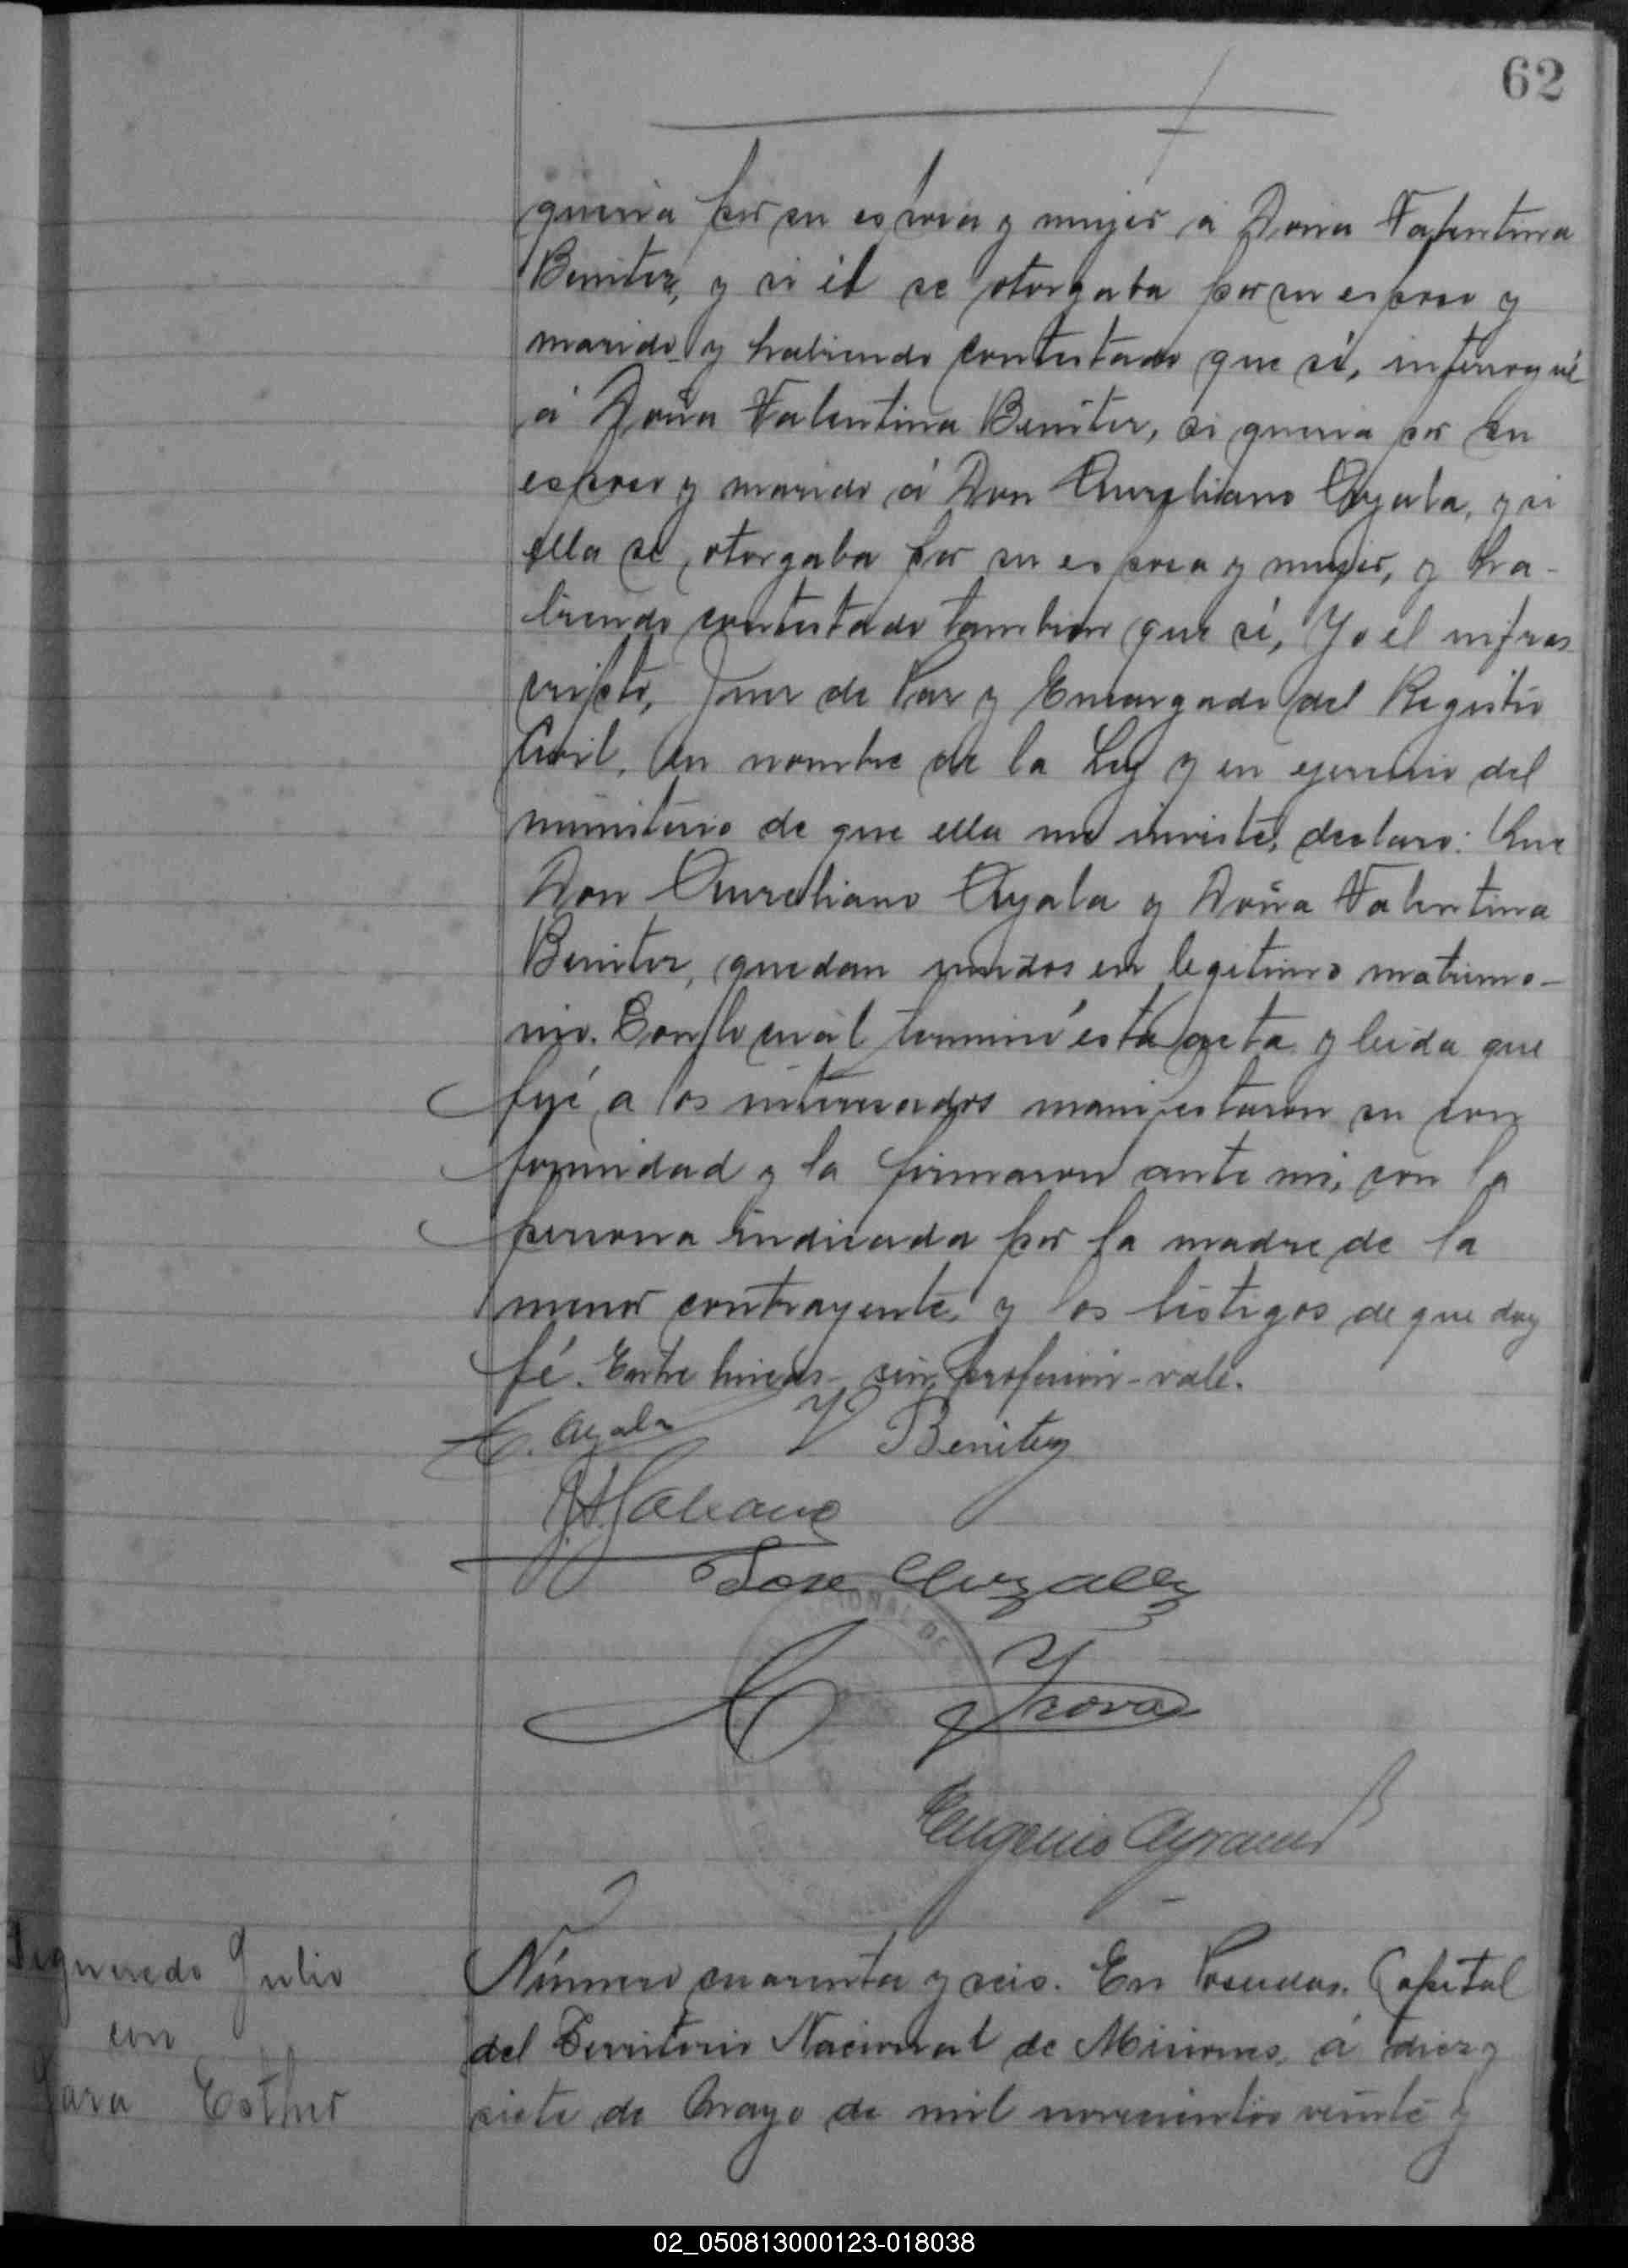 62
queria por su esposa y mujer á Doña Valentina
Benitez, y si él se otorgaba por su esposo y
marido y habiendo contestado que sí, interrogué
á Doña Valentina Benitez, si queria por su
esposo y marido á Don Aureliano Ayala, y si
ella se otorgaba por su esposa y mujer, y ha-
biendo contestado tambien que sí, Yo el infras
cripto, Juez de Paz y Encargado del Registro
Civil, en nombre de la Ley y en ejercicio del
ministerio de que ella me inviste, declaro: Que
Don Aureliano Ayala y Doña Valentina
Benitez, quedan unidos en legitimo matrimo-
nio. Con lo cuál terminó ésta acta y leida que
fué a los interesados manifestaron su con
formidad y la firmaron ante mi, con la
persona indicada por la madre de la
menor contrayente y los testigos de que doy
fé. Entre lineas - sin profesión - vale.
Ayala V Benitez
Jose Gonzalez
Eugenio
Número cuarenta y seis. En Posadas, Capital
del Territorio Nacional de Misiones, á diez y
siete de Mayo de mil novecientos veinte y
Figueredo Julio
con
Jara Esther
02_050813000123-018038